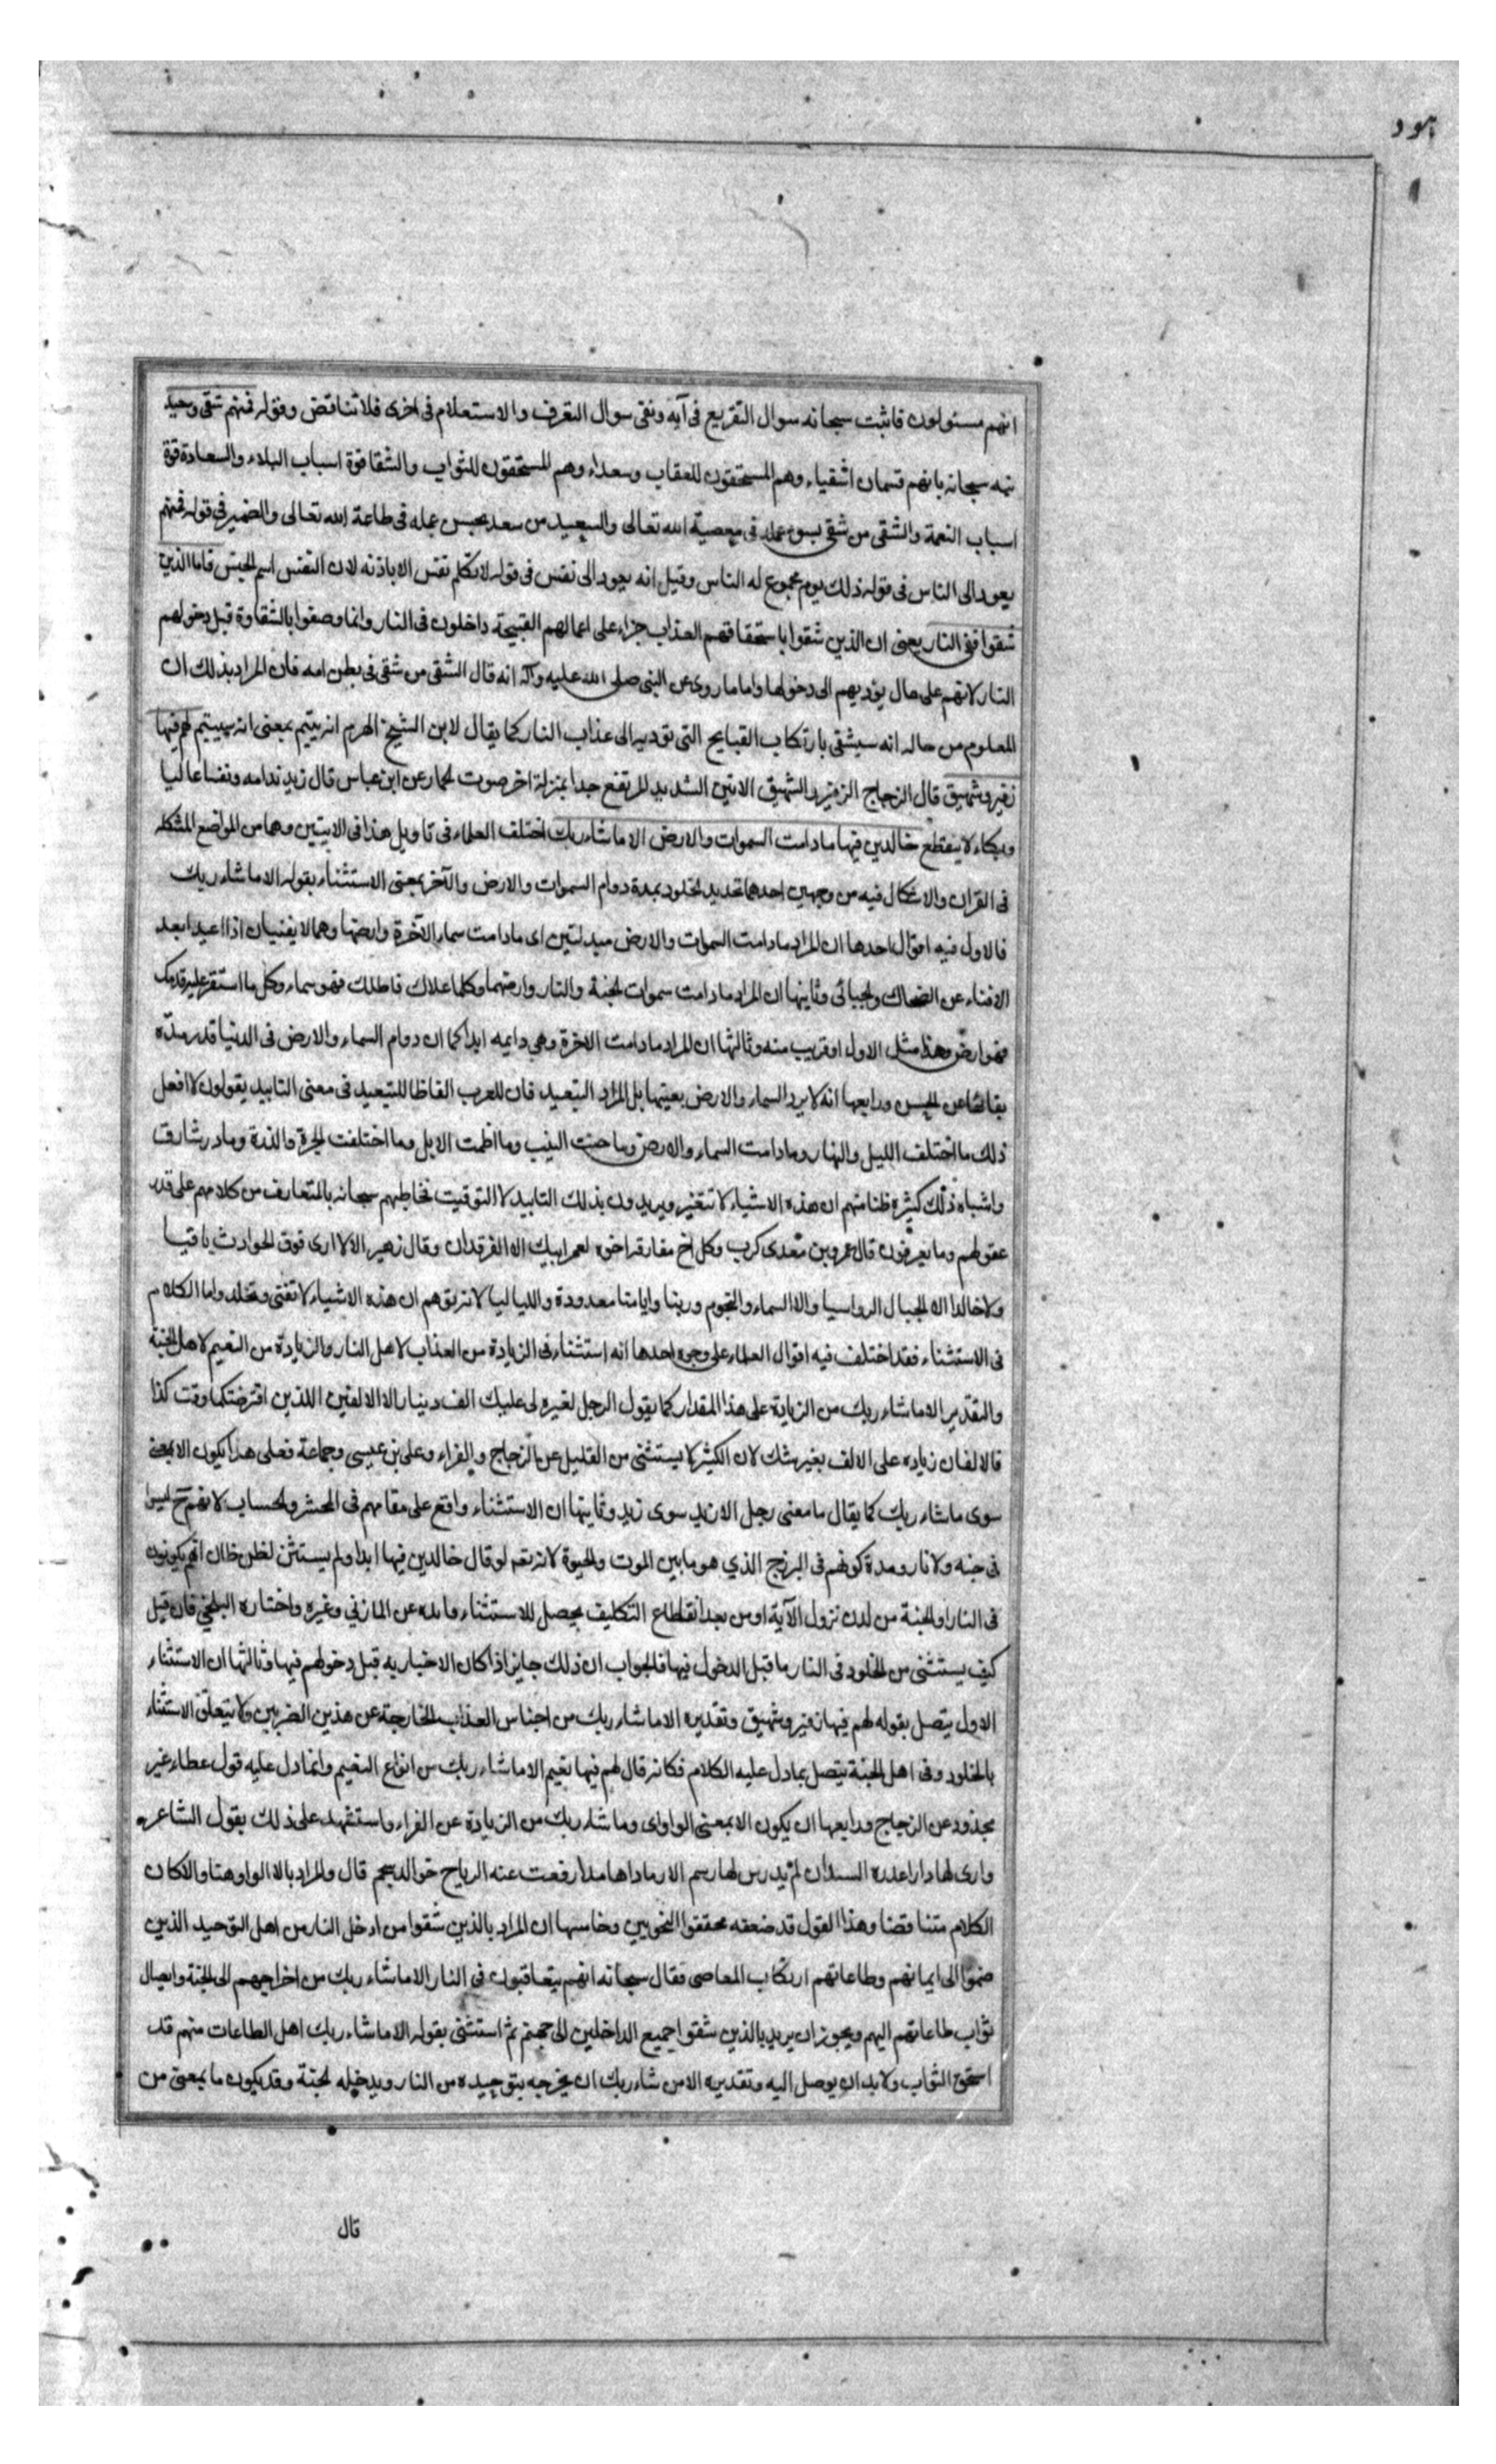 هود
انهم مسئولون فاثبت سبحانه سوال التقريع فى آيه ونفى سوال التعرف والاستعلام فى اخرى فلا تناقض وقوله فمنهم شقى وسعيد
سبحانه بانهم قسمان اشقياء وهم المستحقون للعقاب وسعداء وهم المستحقون للثواب والشقا قوة اسباب البلاء والسعادة قوة
اسباب النعمة والشقى من شقى بسوء عمله فى معصية الله تعالى والسعيد من سعد بحسن عمله فى طاعة الله تعالى والضمير فى قوله فمنهم
يعود الى الناس فى قوله ذلك يوم مجموع له الناس وقيل انه يعود الى نفس فى قوله لا تكلم نفس الا باذنه لان النفس اسم الجنس فاما الذين
شقوا ففى النار يعنى ان الذين شقوا باستحقاقهم العذاب جزاء على اعمالهم القبيحة داخلون فى النار وانما وصفوا بالشقاوة قبل دخولهم
النار لانهم على حال يؤديهم الى دخولها واما ما روى عن النبى صلى الله عليه وآله انه قال الشقى من شقى فى بطن امه فان المراد بذلك ان
المعلوم من حاله انه سيشقى بارتكاب القبايح التى تؤديه الى عذاب النار كما يقال لابن الشيخ الهرم انه يتيم بمعنى انه سييتم لهم فيها
زفير وشهيق قال الزجاج الزفير والشهيق الانين الشديد المرتفع جدا بمنزلة اخر صوت الحمار عن ابن عباس قال زيد ندامه ونفسا عاليا
وبكاء لا ينقطع خالدين فيها ما دامت السموات والارض الا ما شاء ربك اختلف العلماء فى تاويل هذا فى الايتين وهما من المواضع المشكله
فى القران والاشكال فيه من وجهين احدهما تحديد الخلود بمدة دوام السموات والارض والآخر بمعنى الاستثناء بقوله الا ما شاء ربك
فالاول فيه اقوال احدها ان المراد ما دامت السموات والارض مبدلتين اى ما دامت سماء الآخرة وارضها وهما لا يفنيان اذا اعيدا بعد
الافناء عن الضحاك والجبائى وثانيها ان المراد ما دامت سموات الجنة والنار وارضهما وكلما علاك فاظلك فهو سماء وكل ما استقر عليه قدمك
فهو ارض وهذا مثل الاول او قريب منه وثالثها ان المراد ما دامت الاخرة وهى دايمه ابدا كما ان دوام السماء والارض فى الدنيا قدر مدة
بقائها عن الحسن ورابعها انه لا يريد السماء والارض بعينها بل المراد التبعيد فان للعرب الفاظا للتبعيد فى معنى التابيد يقولون لا افعل
ذلك ما اختلف الليل والنهار وما دامت السماء والارض وما حنت النيب وما اطت الابل وما اختلفت الجرة والدرة وما در شارق
واشباه ذلك كثيرة ظنا منهم ان هذه الاشياء لا تتغير ويريدون بذلك التابيد لا التوقيت فخاطبهم سبحانه بالمتعارف من كلامهم على قدر
عقولهم وما يعرفون قال عمرو بن معدى كرب وكل اخ مفارقه اخوه لعمر ابيك الا الفرقدان وقال زهير الا لا ارى فوق الحوادث باقيا
ولا خالدا الا الجبال الرواسيا والا السماء والنجوم وربنا وايامنا معدودة واللياليا لانه توهم ان هذه الاشياء لا تفنى وتخلد واما الكلام
فى الاستثناء فقد اختلف فيه اقوال العلماء على وجوه احدها انه استثناء فى الزيادة من العذاب لاهل النار والزيادة من النعيم لاهل الجنة
والتقدير الا ما شاء ربك من الزيادة على هذا المقدار كما يقول الرجل لغيره لى عليك الف دينار الا الالفين اللذين اقرضتكما وقت كذا
فالالفان زياده على الالف بغير شك لان الكثير لا يستثنى من القليل عن الزجاج والفراء وعلى بن عيسى وجماعة فعلى هذا يكون الا بمعنى
سوى ما شاء ربك كما يقال ما معنى رجل الا زيد سوى زيد وثانيها ان الاستثناء واقع على مقامهم فى المحشر والحساب لانهم ح ليسوا
فى جنه ولا نار ومدة كونهم فى البرزخ الذي هو ما بين الموت والحيوة لانه تعه لو قال خالدين فيها ابدا ولم يستثن لظن ظان انهم يكونون
فى النار او الجنة من لدن نزول الآية او من بعد انقطاع التكليف يحصل للاستثناء فايده عن المازني وغيره واختاره البلخي فان قيل
كيف يستثنى من الخلود فى النار ما قبل الدخول فيها فالجواب ان ذلك جايز اذا كان الاخبار به قبل دخولهم فيها وثالثها ان الاستثناء
الاول يتصل بقوله لهم فيها زفير وشهيق وتقديره الا ما شاء ربك من اجناس العذاب الخارجة عن هذين الضربين ولا يتعلق الاستثناء
بالخلود وفى اهل الجنة يتصل بما دل عليه الكلام فكانه قال لهم فيها نعيم الا ما شاء ربك من انواع النعيم وانما دل عليه قول عطاء غير
مجذوذ عن الزجاج ورابعها ان يكون الا بمعنى الواو اى وما شاء ربك من الزيادة عن الفراء واستشهد على ذلك بقول الشاعر
وارى لها دارا اغدره السيدان لم يدرس لها رسم الا رمادا هامدا رفعت عنه الرياح خوالد سحم قال والمراد بالا الواو هنا والا كان
الكلام متناقضا وهذا القول قد ضعفه محققوا النحويين وخامسها ان المراد بالذين شقوا من ادخل النار من اهل التوحيد الذين
ضموا الى ايمانهم وطاعاتهم ارتكاب المعاصى فقال سبحانه انهم يتعاقبون فى النار الا ما شاء ربك من اخراجهم الى الجنة وايصال
ثواب طاعاتهم اليهم ويجوز ان يريد بالذين شقوا جميع الداخلين الى جهنم ثم استثنى بقوله الا ما شاء ربك اهل الطاعات منهم قد
استحق الثواب ولا بد ان يوصل اليه وتقديره الا من شاء ربك ان يخرجه بتوحيده من النار ويدخله الجنة وقد يكون ما بمعنى من
قال